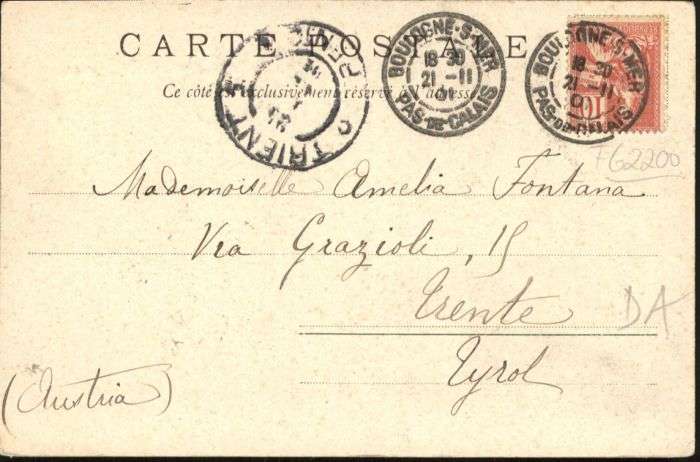 CARTE POSTALE
Ce côté est exclusivement réservé à l'adresse
TRIENT
BOULOGNE-S-MER
18 30
21 -11
01
PAS-DE-CALAIS
BOULOGNE-S-MER
18 30
21 -11
PAS-DE-CALAIS
10
F62200
Mademoiselle Amelia Fontana
Via Grazioli, 15
Trente
DA
Tyrol
(Austria)